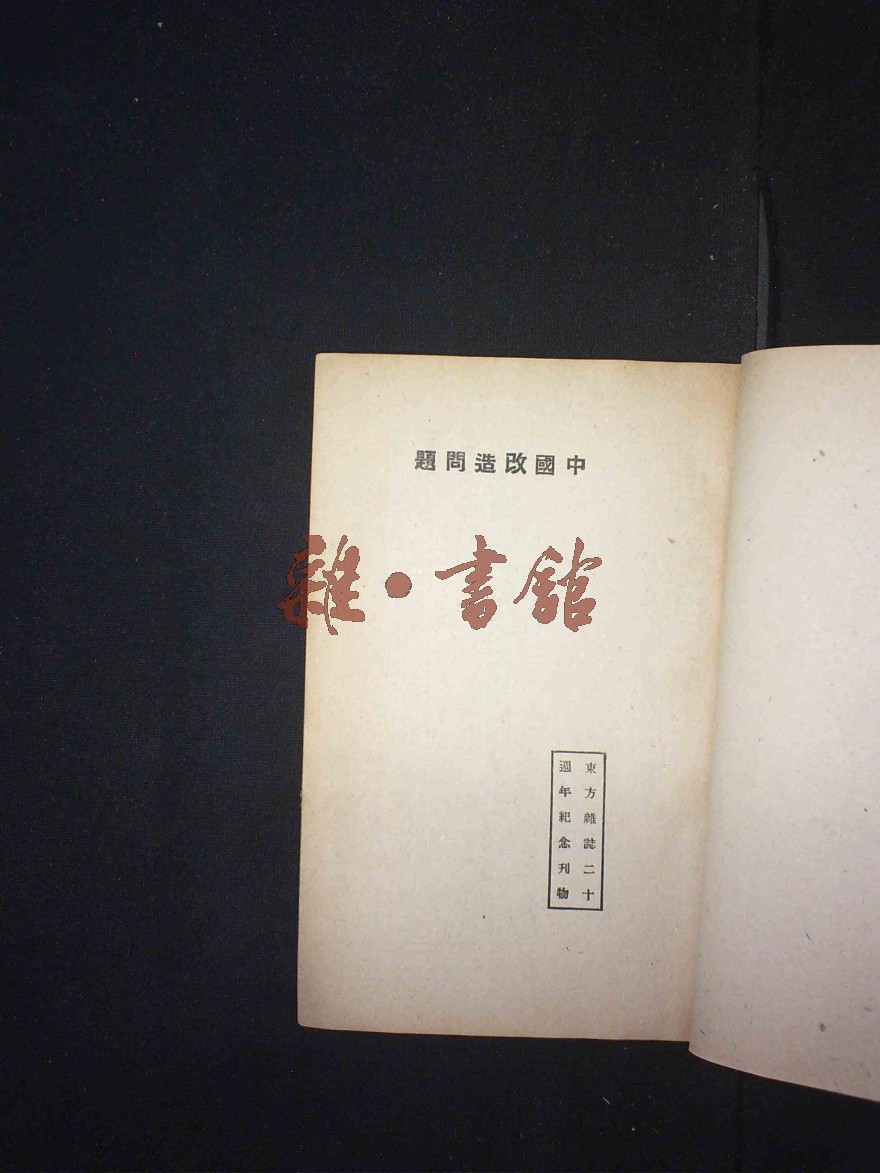 中國改造問題
雜·書館
東方雜誌二十
週年紀念刊物